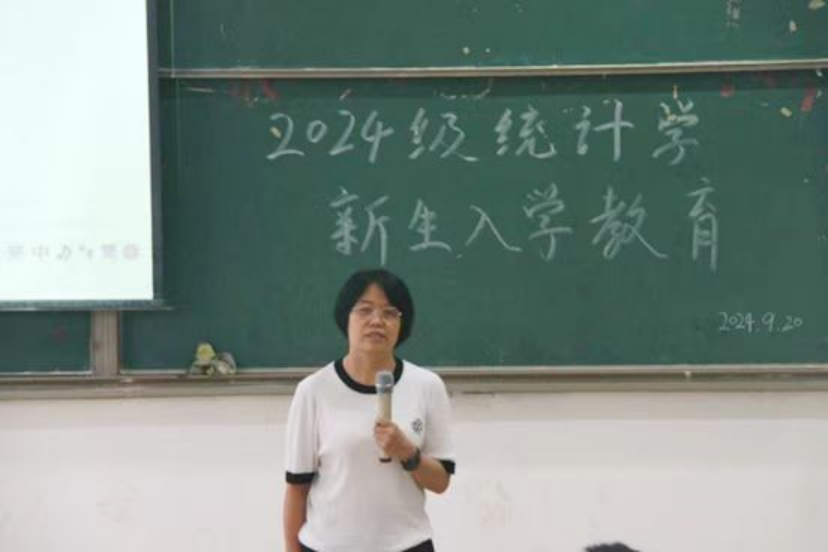 2024级统计学
新生入学教育
2024.9.20